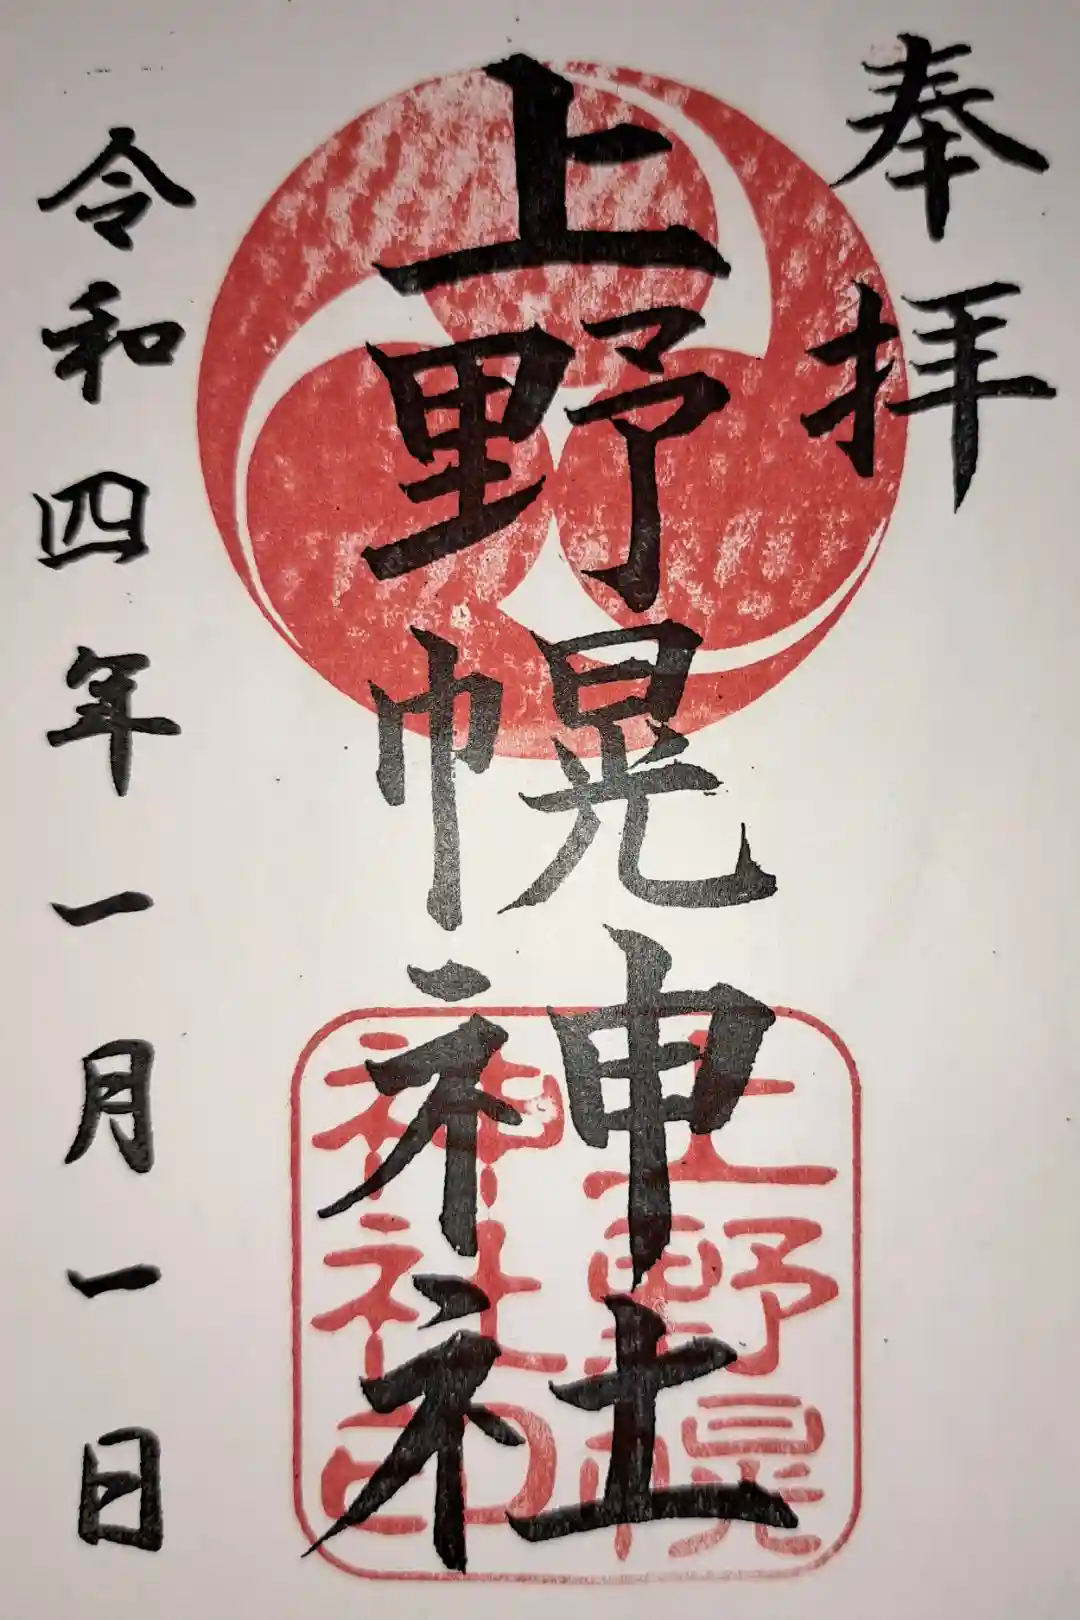 奉拝
上野幌神社
令和四年一月一日
上野幌
神社印